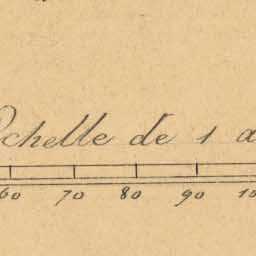 Echelle de 1 a
60 70 80 90 10